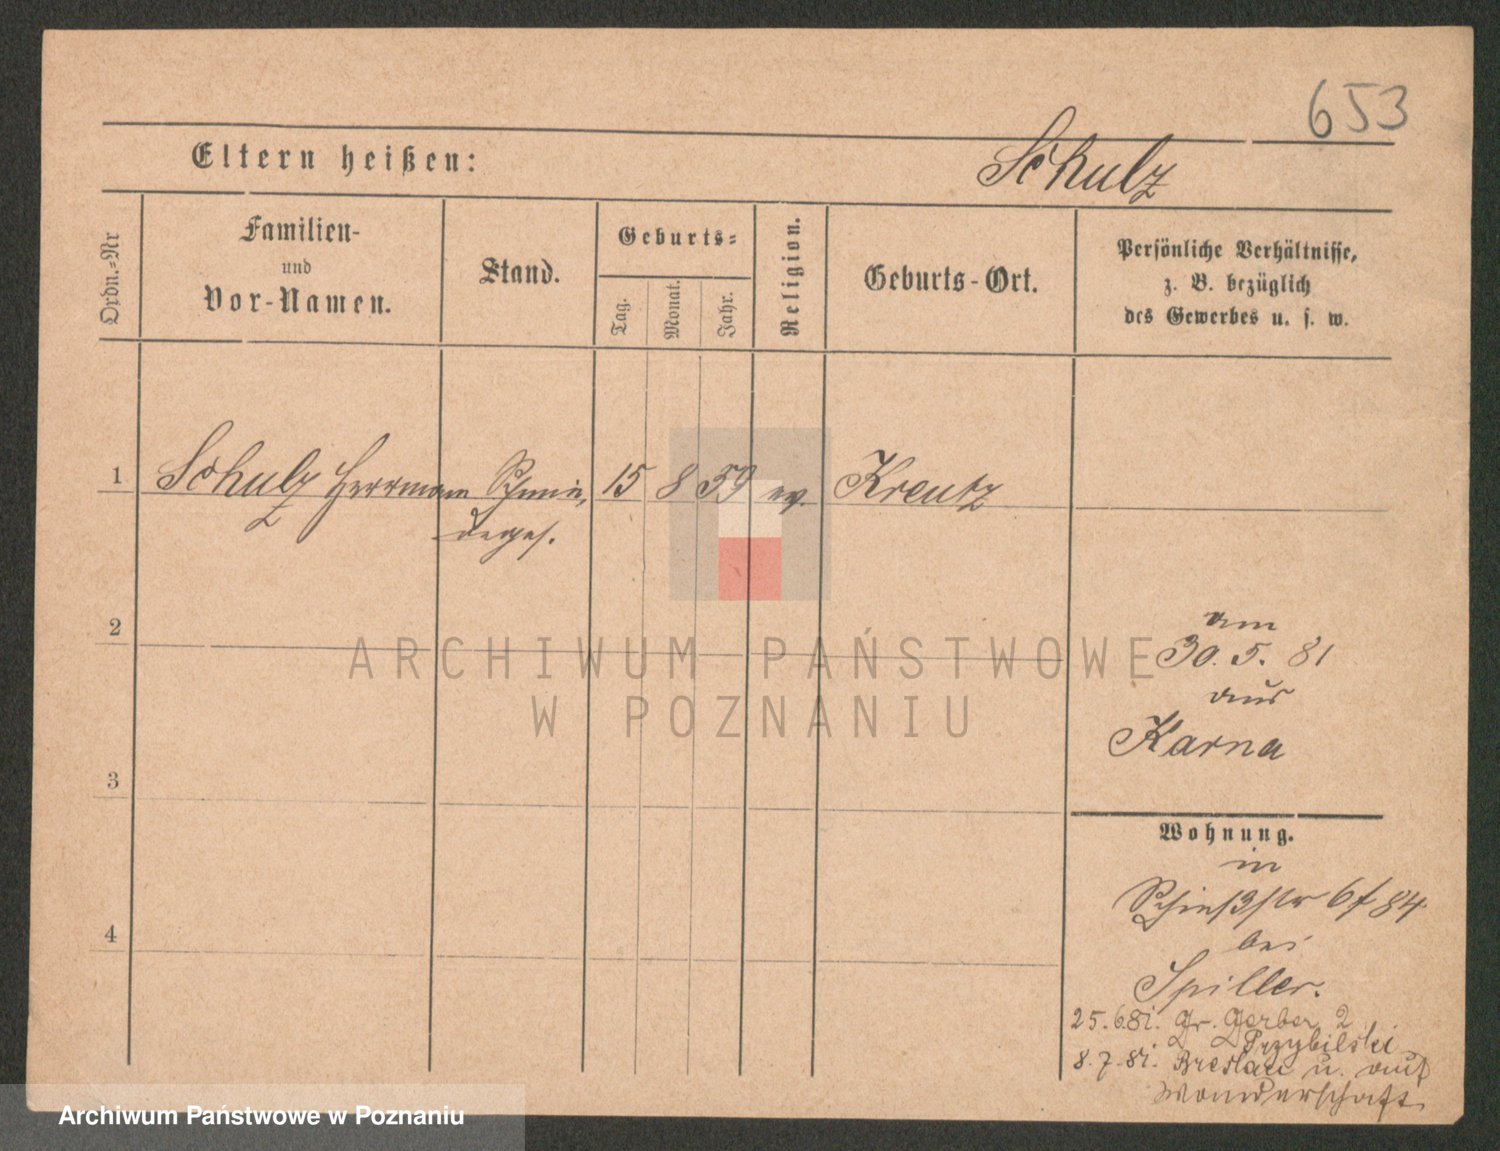 653
Eltern heißen:
Schulz
Ordn.-Nr
Familien-
und
Vor-Namen.
Stand.
Geburts-
Tag.
Monat.
Jahr.
Religion.
Geburts-Ort.
Persönliche Verhältnisse,
z. B. bezüglich
des Gewerbes u. s. w.
1 Schulz Herrmann Schmie, 15 8 59 ev. Kreutz
deges.
2
am
30. 5. 81
aus
Karna
3
Wohnung.
in
Schießstr 6 f 84
4
bei
Spiller.
25.6.81. Gr. Gerber 2
Przybilski
8.7.81. Breslau u. auf
Wanderschaft.
ARCHIWUM PAŃSTWOWE
W POZNANIU
Archiwum Państwowe w Poznaniu